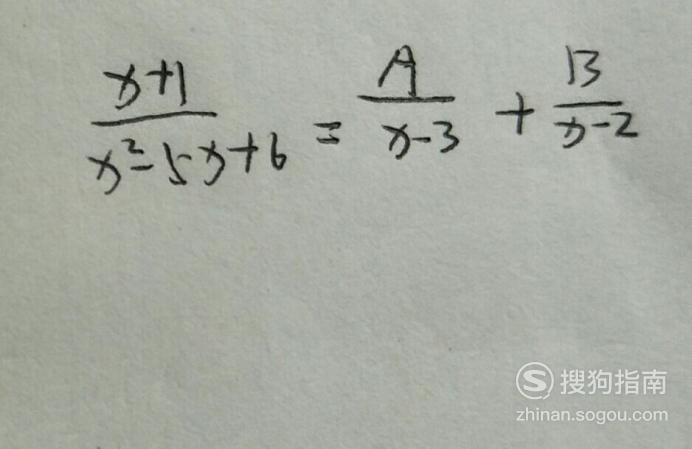 x+1/x²-5x+6 = A/x-3 + B/x-2
搜狗指南
zhinan.sogou.com